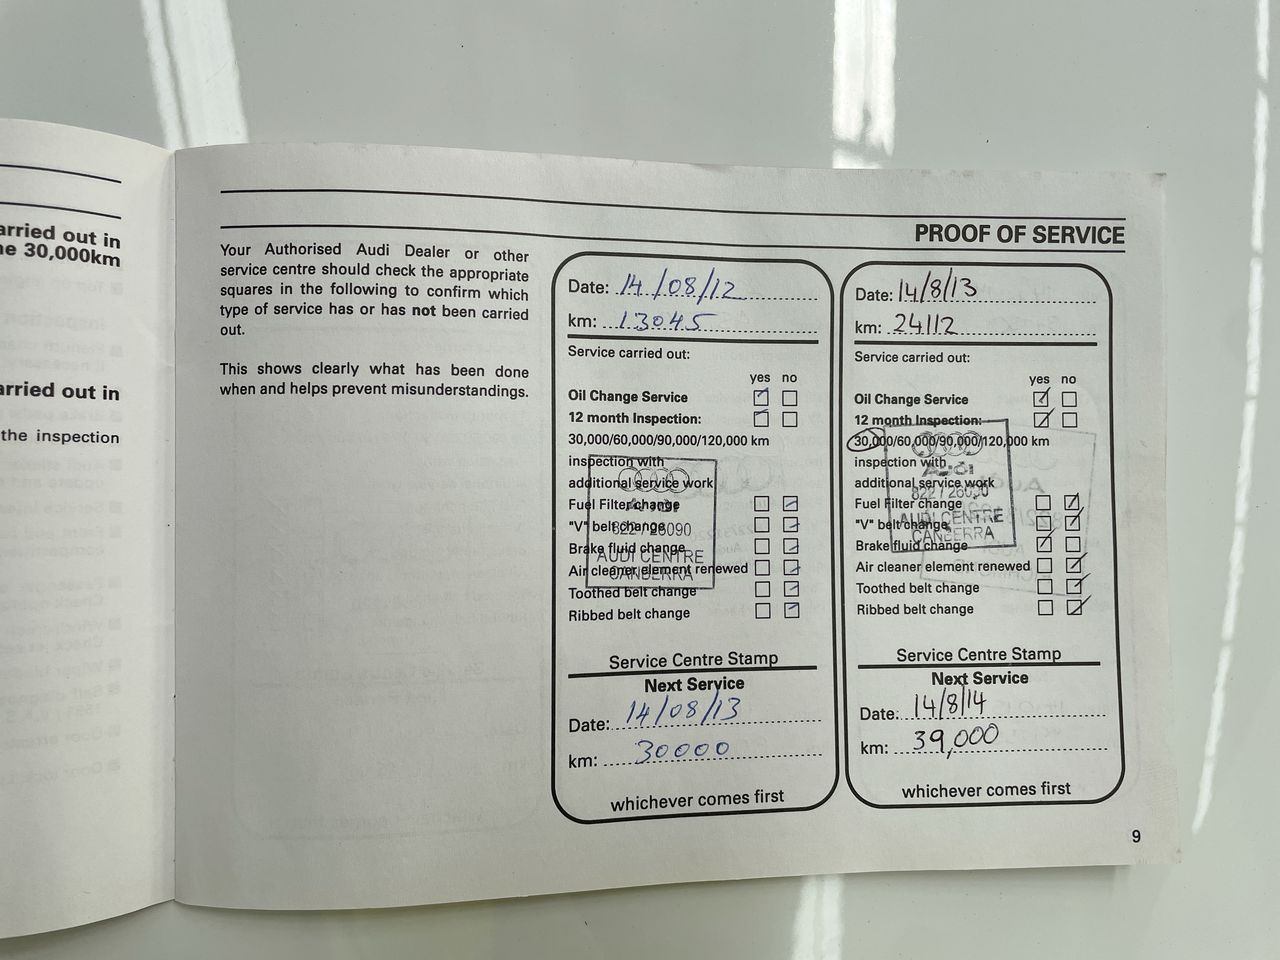 arried out in
ne 30,000km
arried out in
the inspection
PROOF OF SERVICE
Your Authorised Audi Dealer or other
service centre should check the appropriate
squares in the following to confirm which
type of service has or has not been carried
out.
This shows clearly what has been done
when and helps prevent misunderstandings.
Date: 14/08/12
km: 13045
Service carried out:
yes no
Oil Change Service
12 month Inspection:
30,000/60,000/90,000/120,000 km
inspection with
additional service work
Fuel Filter change
"V" belt change
Brake fluid change
Air cleaner element renewed
Toothed belt change
Ribbed belt change
Audi
822 / 26090
AUDI CENTRE
CANBERRA
Service Centre Stamp
Next Service
Date: 14/08/13
km: 30000
whichever comes first
Date: 14/8/13
km: 24112
Service carried out:
yes no
Oil Change Service
12 month Inspection:
30,000/60,000/90,000/120,000 km
inspection with
additional service work
Fuel Filter change
"V" belt change
Brake fluid change
Air cleaner element renewed
Toothed belt change
Ribbed belt change
Audi
822 / 26090
AUDI CENTRE
CANBERRA
Service Centre Stamp
Next Service
Date: 14/8/14
km: 39,000
whichever comes first
9